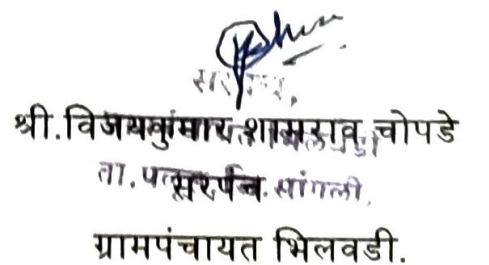 सरपंच,
श्री.विजयकुमार शामराव चोपडे
ता. पलूस, जि. सांगली.
सरपंच
ग्रामपंचायत भिलवडी.